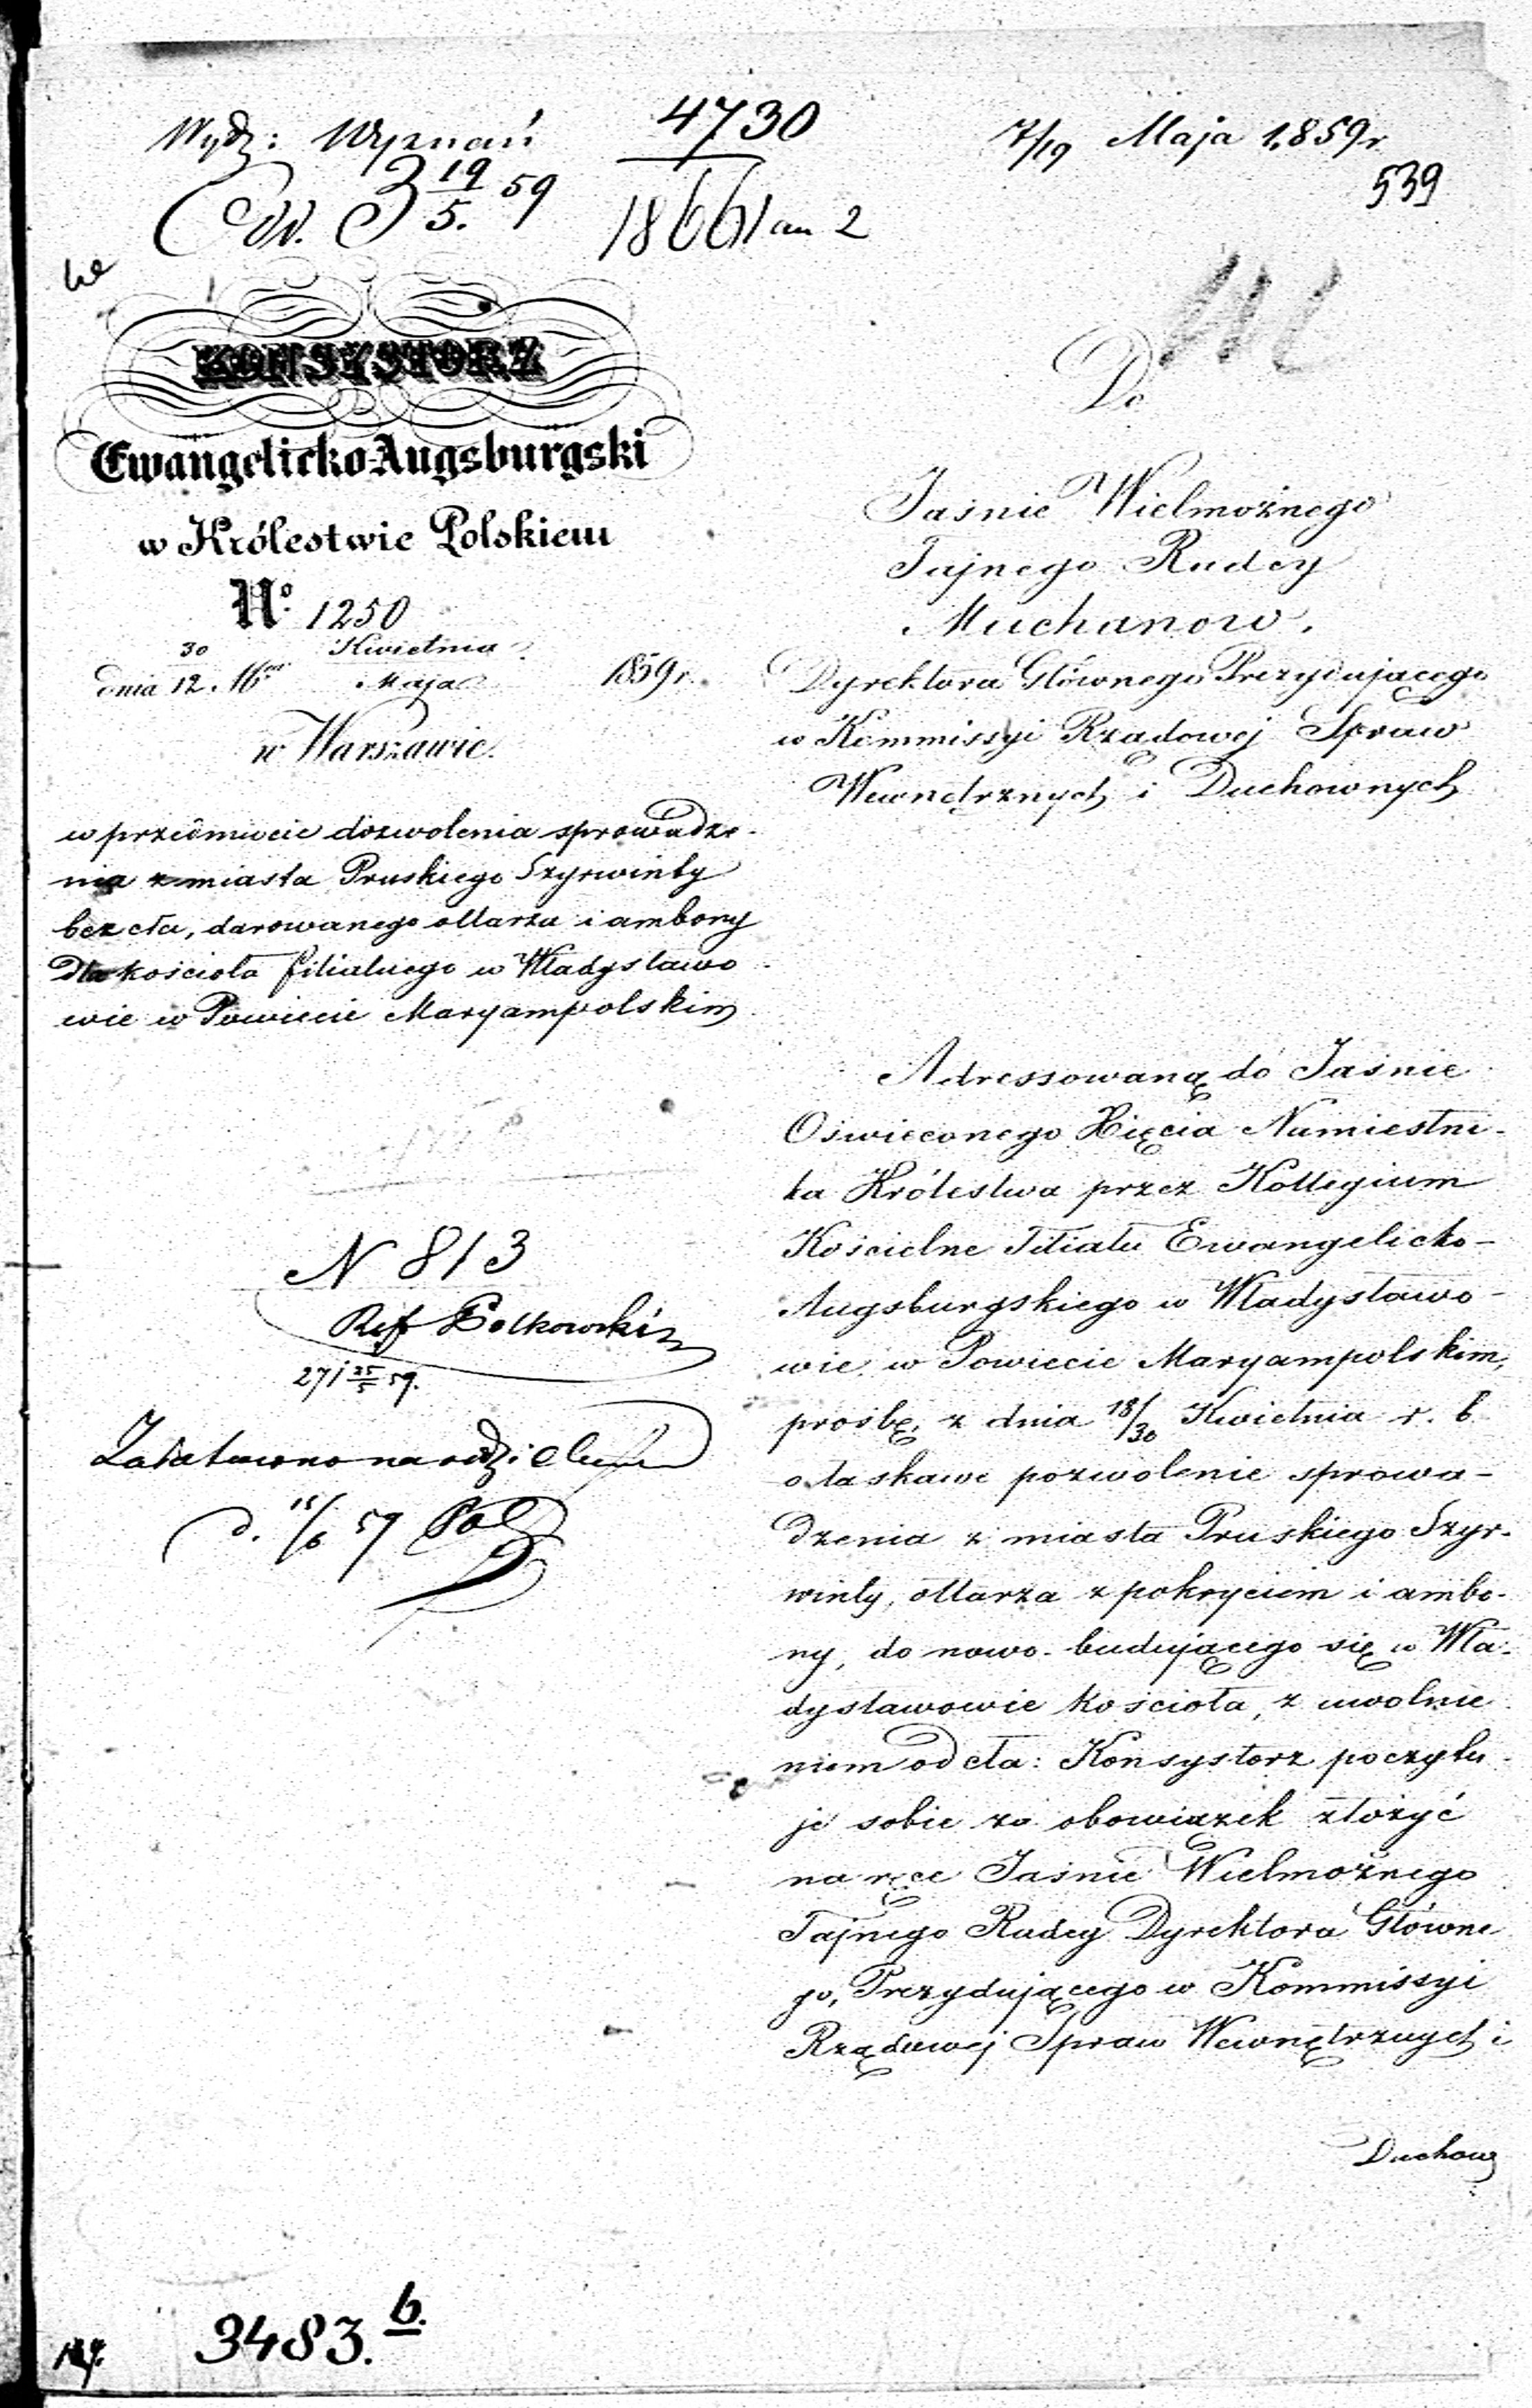 Wydz: Wyznań
4730
7/19 Maja 1859 r.
539
19
5. 59
18661 an 2
Do
KONSYSTORZ
Ewangelicko-Augsburgski
w Królestwie Polskiem
No. 1250
dnia 30 Kwietnia
12. Maja 1859 r.
w Warszawie.
w przedmiocie dozwolenia sprowadze-
nia z miasta Pruskiego Szyrwinty
bez cła, darowanego ołtarza i ambony
dla kościoła filialnego w Władysławo
wie w Powiecie Maryampolskim
N 813
27/ 25/5 59.
Załatwiono na
d. 15/6 59
Jaśnie Wielmożnego
Tajnego Radcy
Muchanow.
Dyrektora Głównego Prezydującego
w Kommissyi Rządowej Spraw
Wewnętrznych i Duchownych
Adressowaną do Jaśnie
Oświeconego Xięcia Namiestni-
ka Królestwa przez Kollegium
Kościelne Filiału Ewangelicko-
Augsburgskiego w Władysławo-
wie w Powiecie Maryampolskim,
prośbę, z dnia 18/30 Kwietnia r. b
o łaskawe pozwolenie sprowa-
dzenia z miasta Pruskiego Szyr-
winty, ołtarza z pokryciem i ambo-
ny, do nowo-budującego się w Wła-
dysławowie kościoła, z uwolnie
niem od cła: Konsystorz poczytu-
je sobie za obowiązek złożyć
na ręce Jaśnie Wielmożnego
Tajnego Radcy Dyrektora Główne
go, Prezydującego w Kommissyi
Rządowej Spraw Wewnętrznych i
Duchow
3483. b.